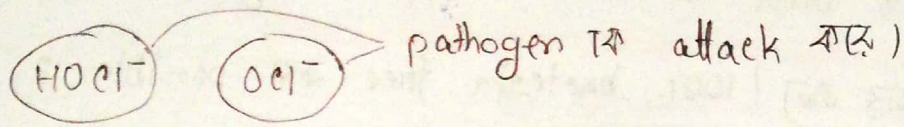 HOCl⁻ OCl⁻ pathogen কে attack করে)